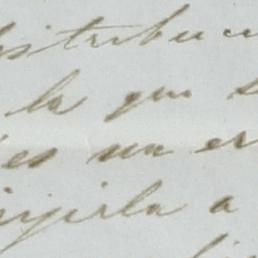 distribuci
la que s
es un er
irjirla a